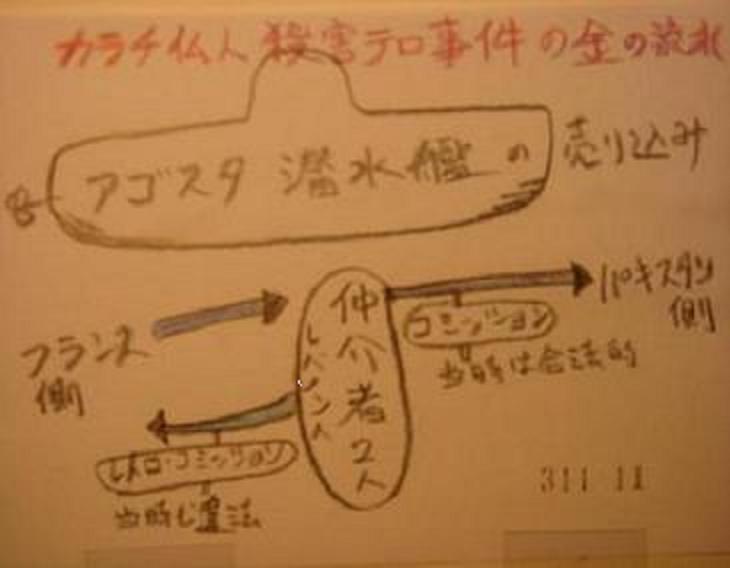 カラチ仏人殺害テロ事件の金の流れ
アゴスタ 潜水艦の売り込み
フランス側
仲介者2人
レバノン人
パキスタン側
コミッション
当時は合法的
レトロ・コミッション
当時も違法
311 11